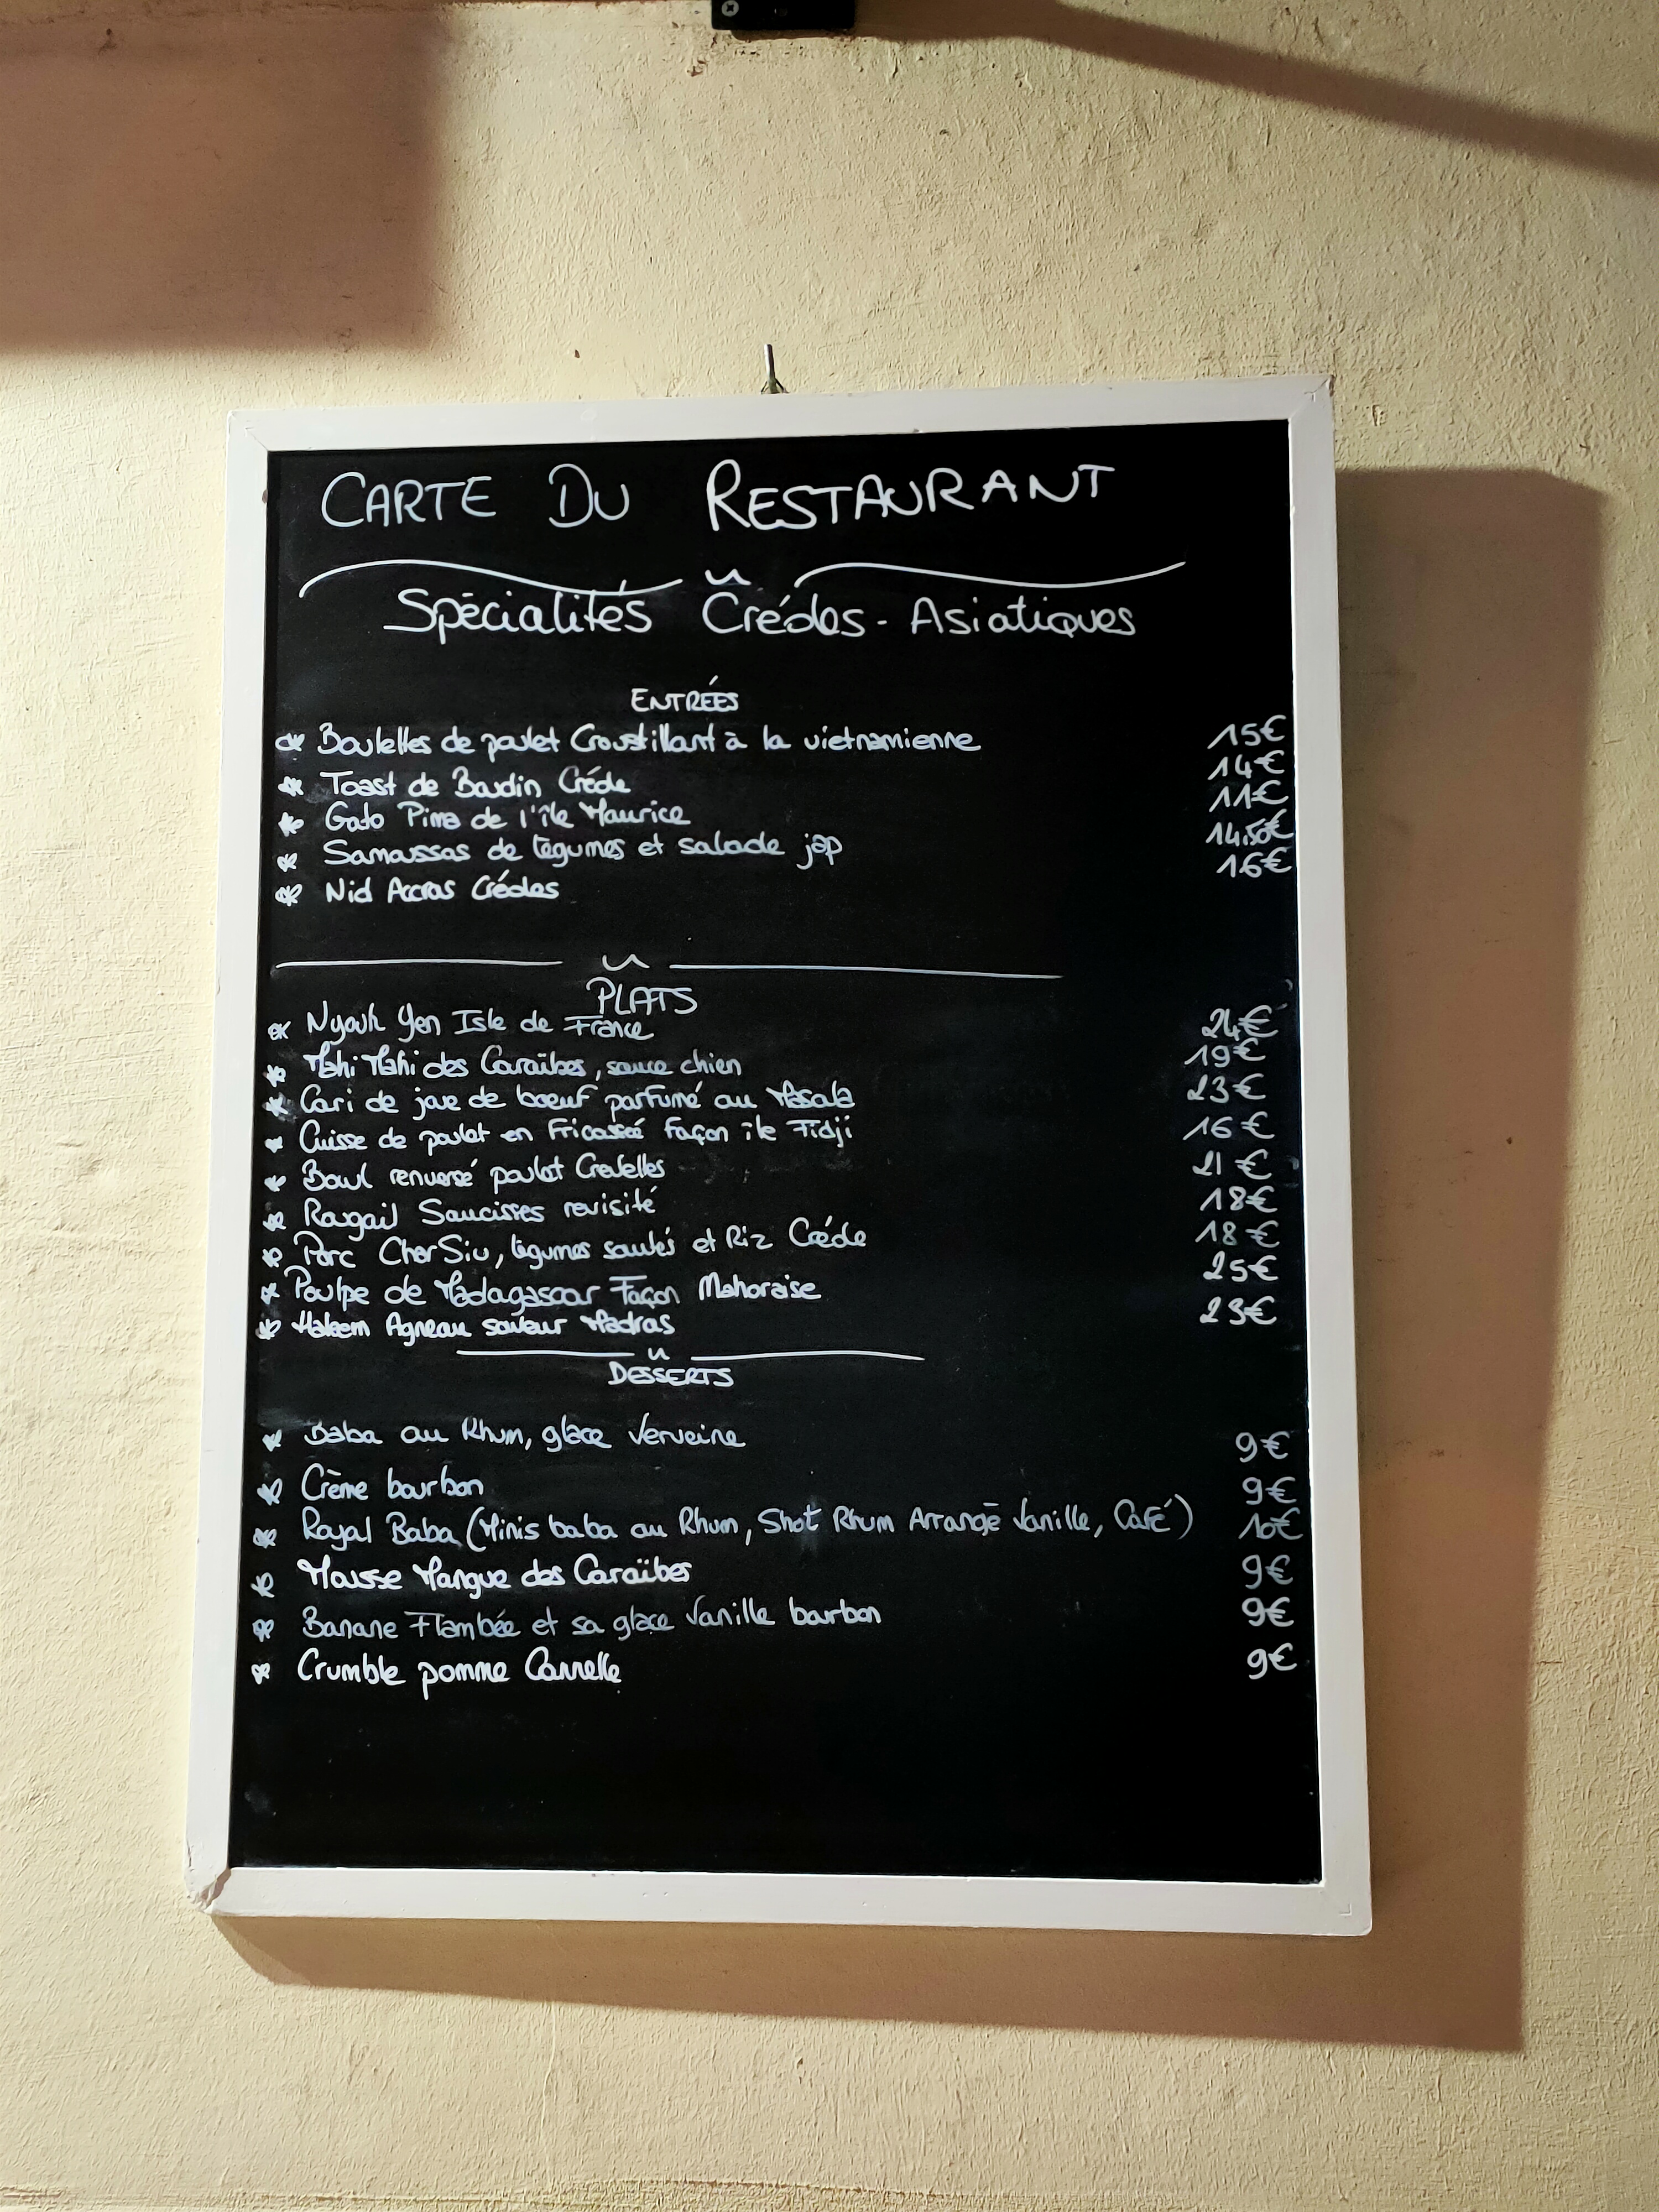 CARTE DU RESTAURANT
Spécialités Créoles - Asiatiques
ENTRÉES
Boulettes de poulet Croustillant à la vietnamienne 15€
Toast de Boudin Créole 14€
Gato Pima de l'île Maurice 11€
Samoussas de légumes et salade jap 14,50€
Nid Accras Créoles 16€
PLATS
Nyouk Yen Isle de France 24€
Mahi Mahi des Caraïbes, sauce chien 19€
Cari de joue de boeuf parfumé au Masala 23€
Cuisse de poulet en Fricassé Façon île Fidji 16€
Bowl renversé poulet Crevettes 21€
Rougail Saucisses revisité 18€
Porc Char Siu, légumes sautés et Riz Créole 18€
Poulpe de Madagascar Façon Mahoraise 25€
Haleem Agneau saveur Madras 23€
DESSERTS
Baba au Rhum, glace Verveine 9€
Crème bourbon 9€
Royal Baba (Minis baba au Rhum, Shot Rhum Arrangé Vanille, Café) 10€
Mousse Mangue des Caraïbes 9€
Banane Flambée et sa glace Vanille bourbon 9€
Crumble pomme Cannelle 9€